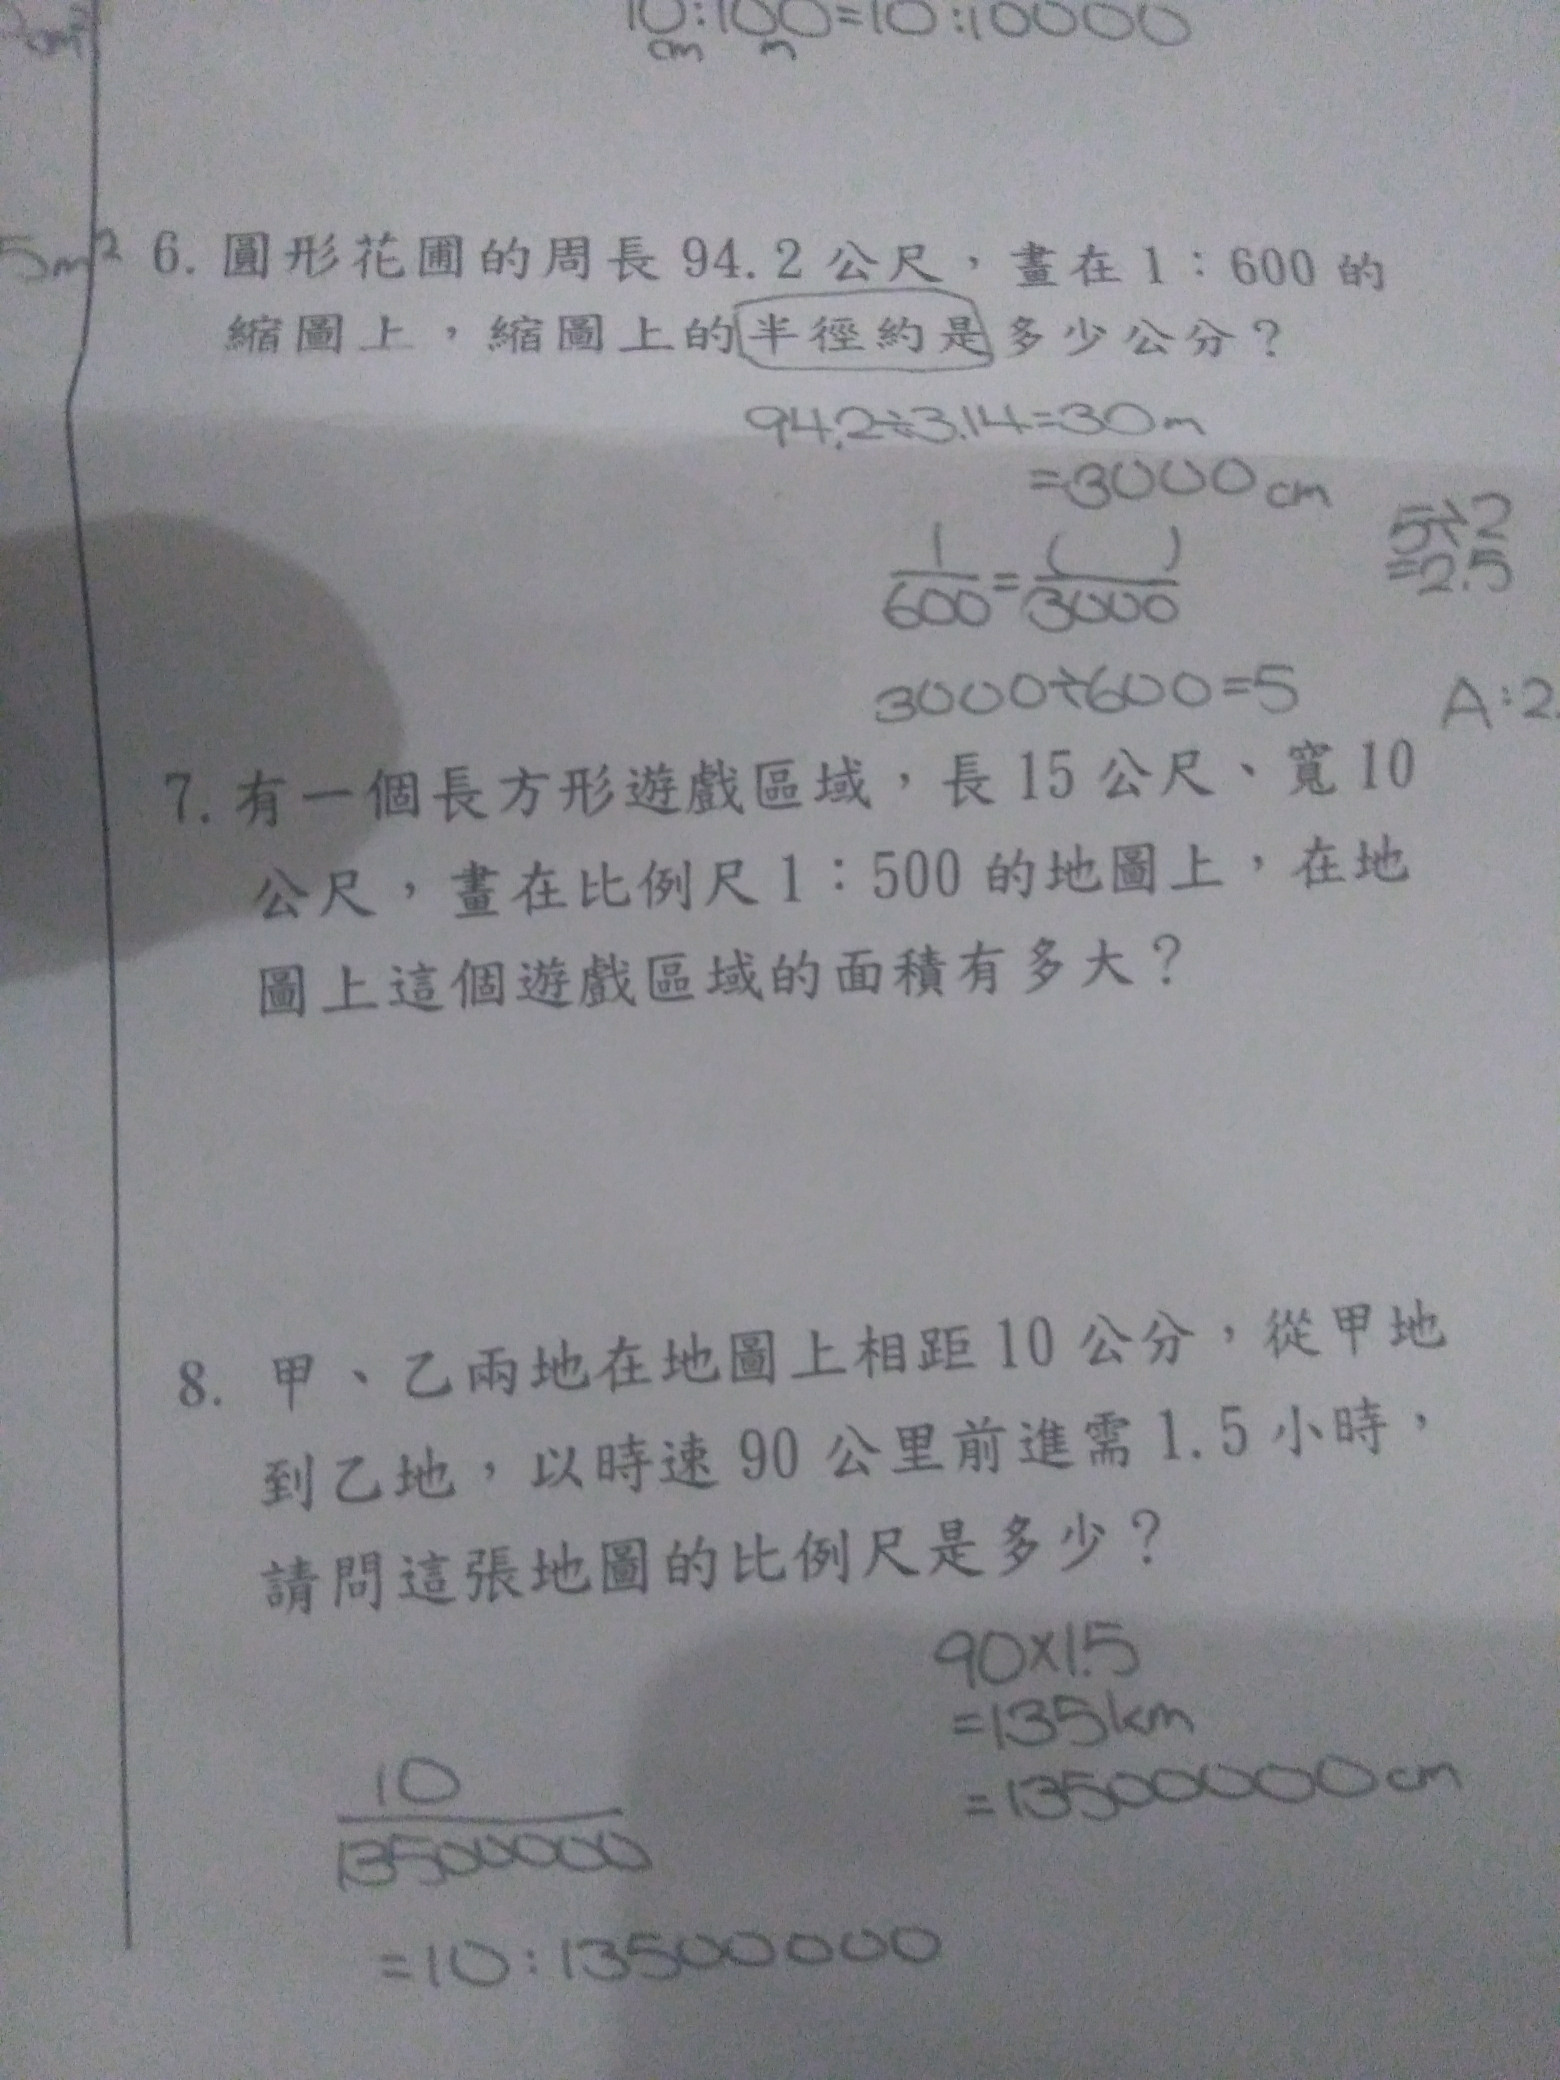 cm²
10:100=10:10000
cm m
5m²
6. 圓形花圃的周長 94.2 公尺，畫在 1：600 的
縮圖上，縮圖上的半徑約是多少公分？
94.2÷3.14=30m
=3000cm
1/600=( )/3000
5÷2
=2.5
3000÷600=5
A:2.
7. 有一個長方形遊戲區域，長 15 公尺、寬 10
公尺，畫在比例尺 1：500 的地圖上，在地
圖上這個遊戲區域的面積有多大？
8. 甲、乙兩地在地圖上相距 10 公分，從甲地
到乙地，以時速 90 公里前進需 1.5 小時，
請問這張地圖的比例尺是多少？
90×1.5
=135km
=13500000cm
10
13500000
=10:13500000